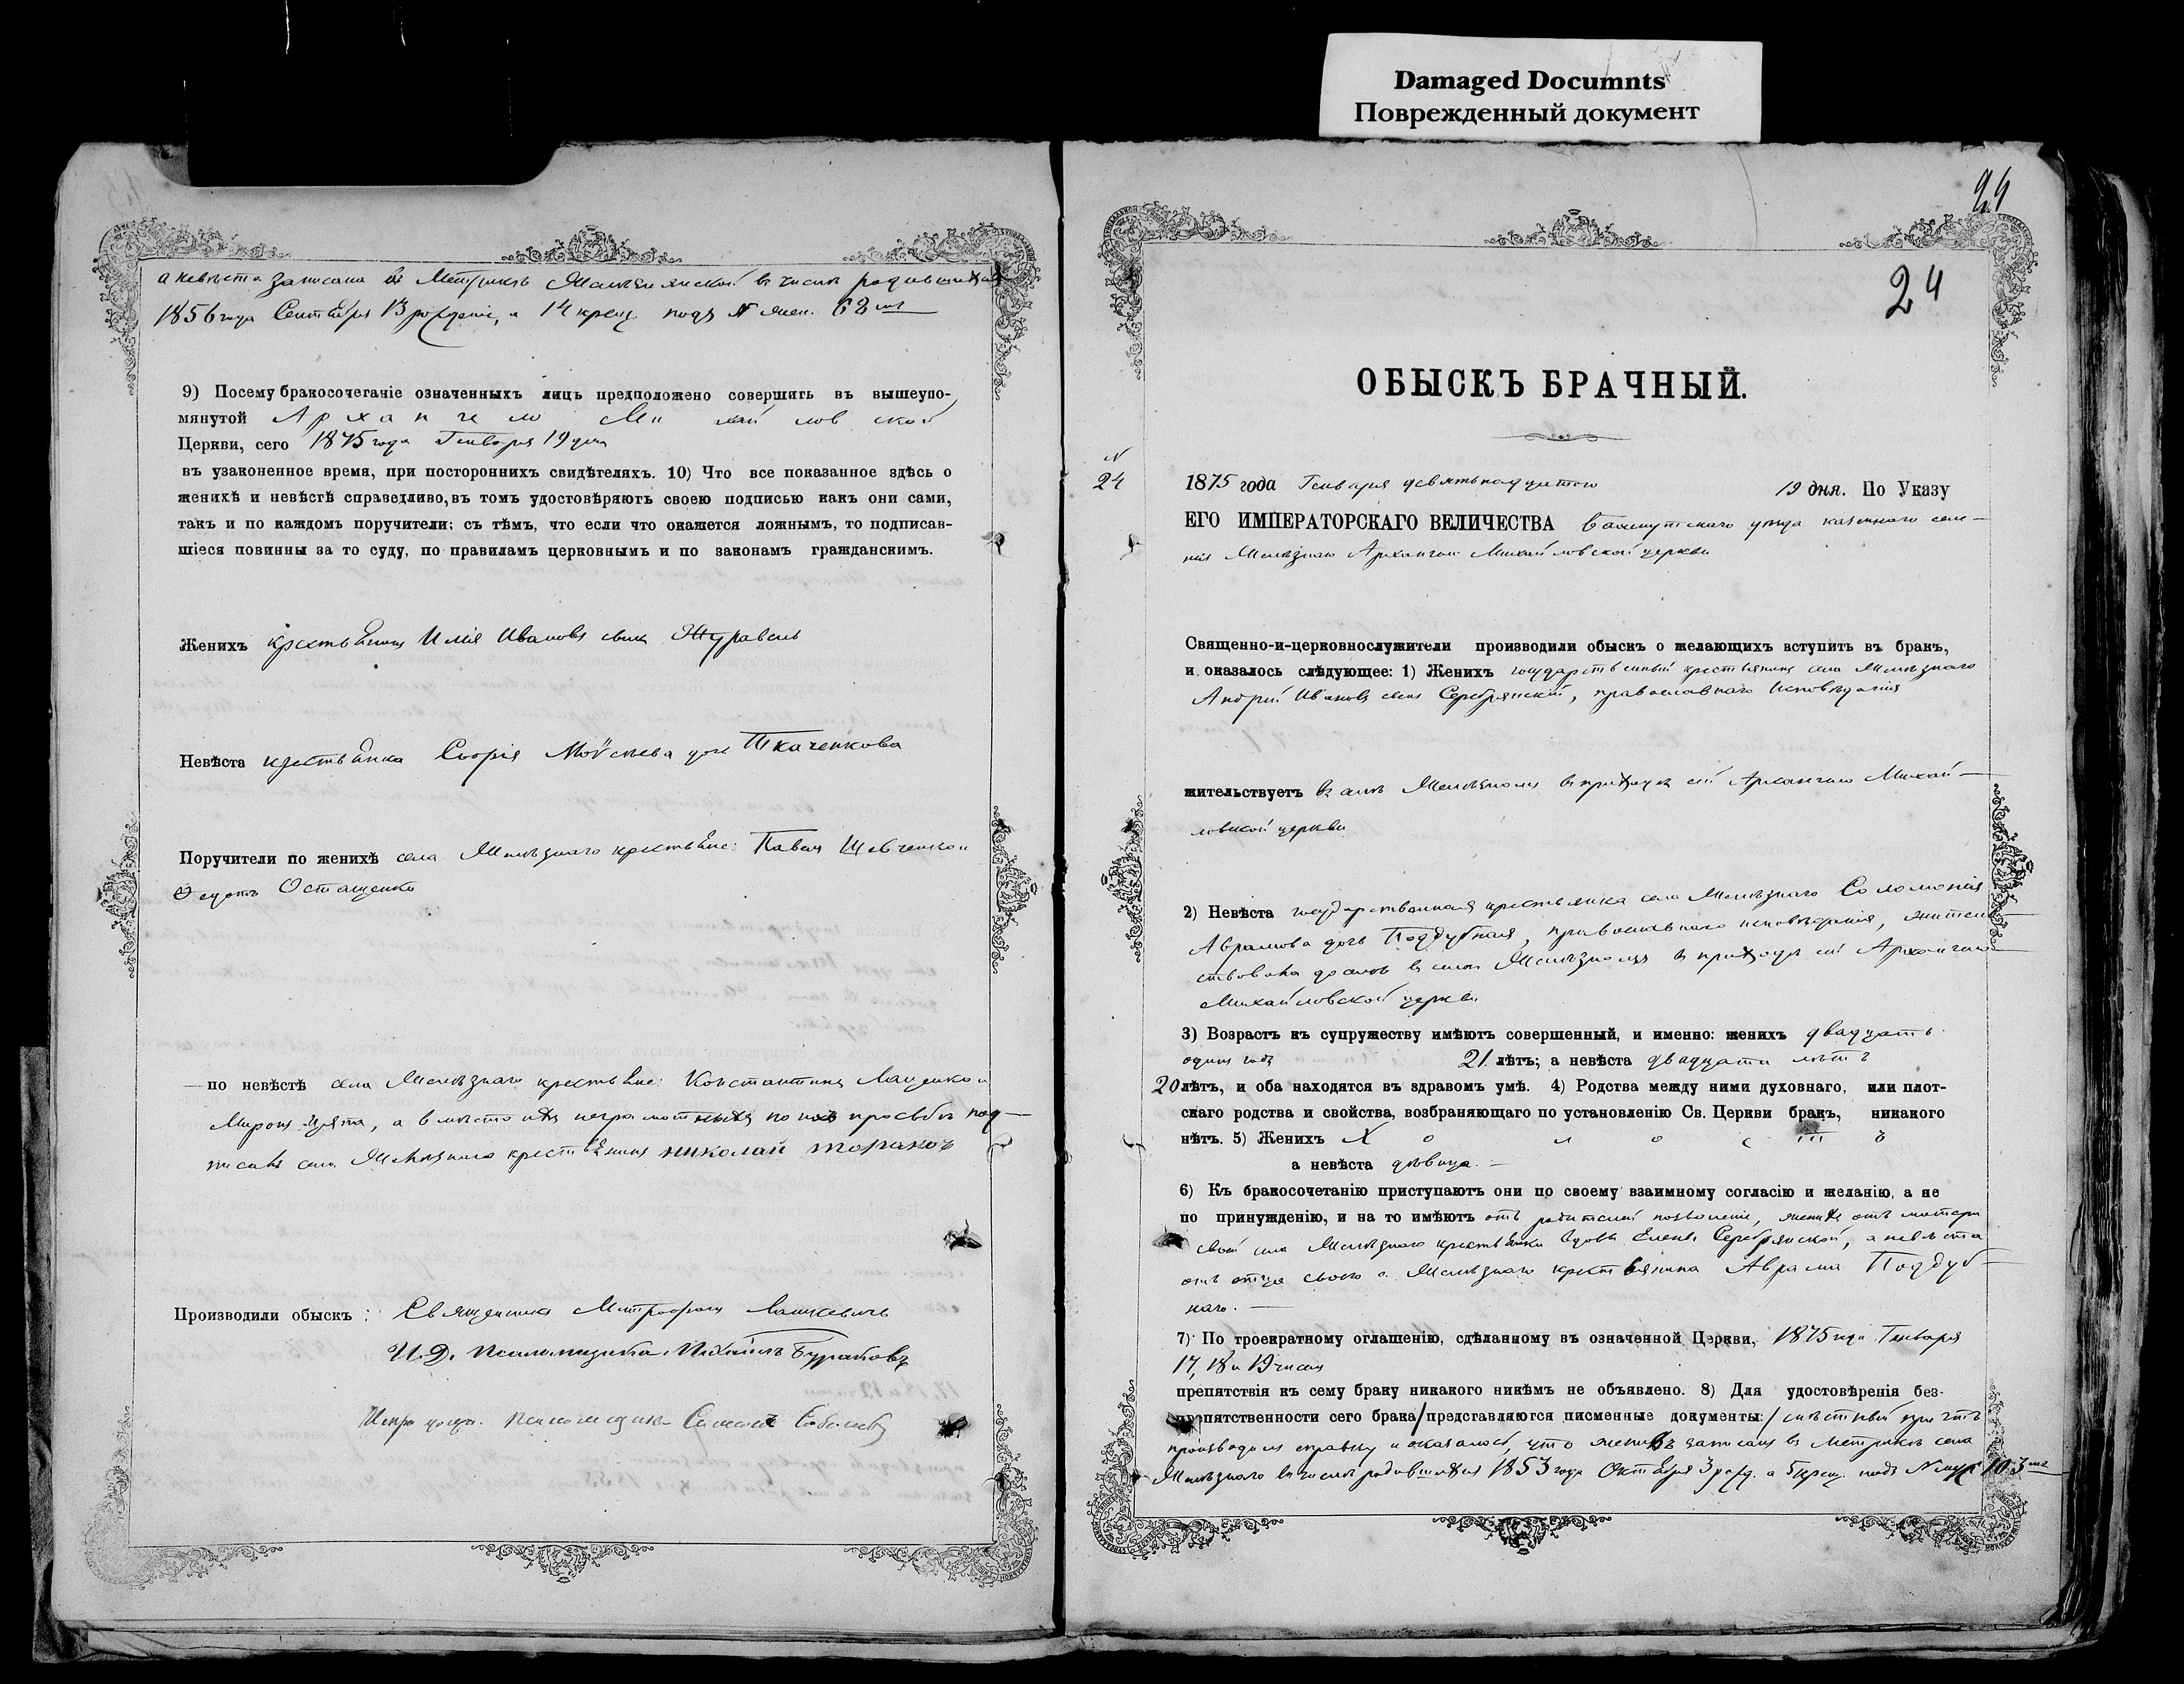 Damaged Documnts
Поврежденный документ
а невѣста записана въ Метрикѣ Желѣзянской въ числѣ родившихся
1856 года Сентября 13 рожденіе, а 14 крещ. подъ № жен. 68
9) Посему бракосочетаніе означенныхъ лицъ предположено совершить въ вышеупо-
мянутой Архангело Михайловской
Церкви, сего 1875 года Генваря 19 дня
въ узаконенное время, при постороннихъ свидѣтеляхъ. 10) Что все показанное здѣсь о
женихѣ и невѣстѣ справедливо, въ томъ удостовѣряютъ своею подписью какъ они сами,
такъ и по каждомъ поручители; съ тѣмъ, что если что окажется ложнымъ, то подписав-
шіеся повинны за то суду, по правиламъ церковнымъ и по законамъ гражданскимъ.
Женихъ крестьянинъ Илія Ивановъ сынъ Журавель
Невѣста крестьянка Софія Мойсѣева дочь Ткаченкова
Поручители по женихѣ села Желѣзнаго крестьяне: Павелъ Шевченко и
Федотъ Остащенко
по невѣстѣ села Желѣзнаго крестьяне: Константинъ Лащенко и
Миронъ, а вмѣсто ихъ неграмотныхъ по ихъ просьбѣ под-
писалъ села Желѣзнаго крестьянинъ николай
Производили обыскъ: Священникъ Митрофанъ
И. Д. Псаломщика Михаилъ Бураковъ
Испр. долж. псаломщика
24
24
ОБЫСКЪ БРАЧНЫЙ.
N
24
1875 года Генваря девятьнадцатого 19 дня. По Указу
ЕГО ИМПЕРАТОРСКАГО ВЕЛИЧЕСТВА Бахмутскаго уѣзда казеннаго селе-
нія Желѣзнаго Архангело Михайловской церкви
Священно-и-церковнослужители производили обыскъ о желающихъ вступить въ бракъ,
и оказалось слѣдующее: 1) Женихъ государственный крестьянинъ села Желѣзнаго
Андрій Ивановъ сынъ Серебрянскій, православнаго исповѣданія
жительствуетъ въ селѣ Желѣзномъ въ приходѣ сей Архангело Михай-
ловской церкви
2) Невѣста государственная крестьянка села Желѣзнаго Соломонія
Аврамова дочь Поддубная, православнаго исповѣданія, житель-
ствовала доселѣ въ селѣ Желѣзномъ въ приходѣ сей Архангело
Михайловской церкви
3) Возрастъ къ супружеству имѣютъ совершенный, и именно: женихъ двадцать
одинъ годъ 21 лѣтъ; а невѣста двадцати лѣтъ
20 лѣтъ, и оба находятся въ здравомъ умѣ. 4) Родства между ними духовнаго, или плот-
скаго родства и свойства, возбраняющаго по установленію Св. Церкви бракъ, никакого
нѣтъ. 5) Женихъ Холостъ
а невѣста дѣвица.
6) Къ бракосочетанію приступаютъ они по своему взаимному согласію и желанію, а не
по принужденію, и на то имѣютъ отъ родителей позволеніе, женихъ отъ матери
своей села Желѣзнаго крестьянки вдовы Елены Серебрянской, а невѣста
отъ отца своего с. Желѣзнаго крестьянина Аврама Поддуб-
наго.
7) По троекратному оглашенію, сдѣланному въ означенной Церкви, 1875 года Генваря
17, 18 и 19 чиселъ
препятствія къ сему браку никакого никѣмъ не объявлено. 8) Для удостовѣренія без-
препятственности сего брака / представляются писменные документы: / мѣстный причтъ
производилъ справку и оказалось, что женихъ записанъ въ метрикѣ села
Желѣзнаго въ числѣ родившихся 1853 года Октября 3 рожд. а 5 крещ. подъ № муж 103